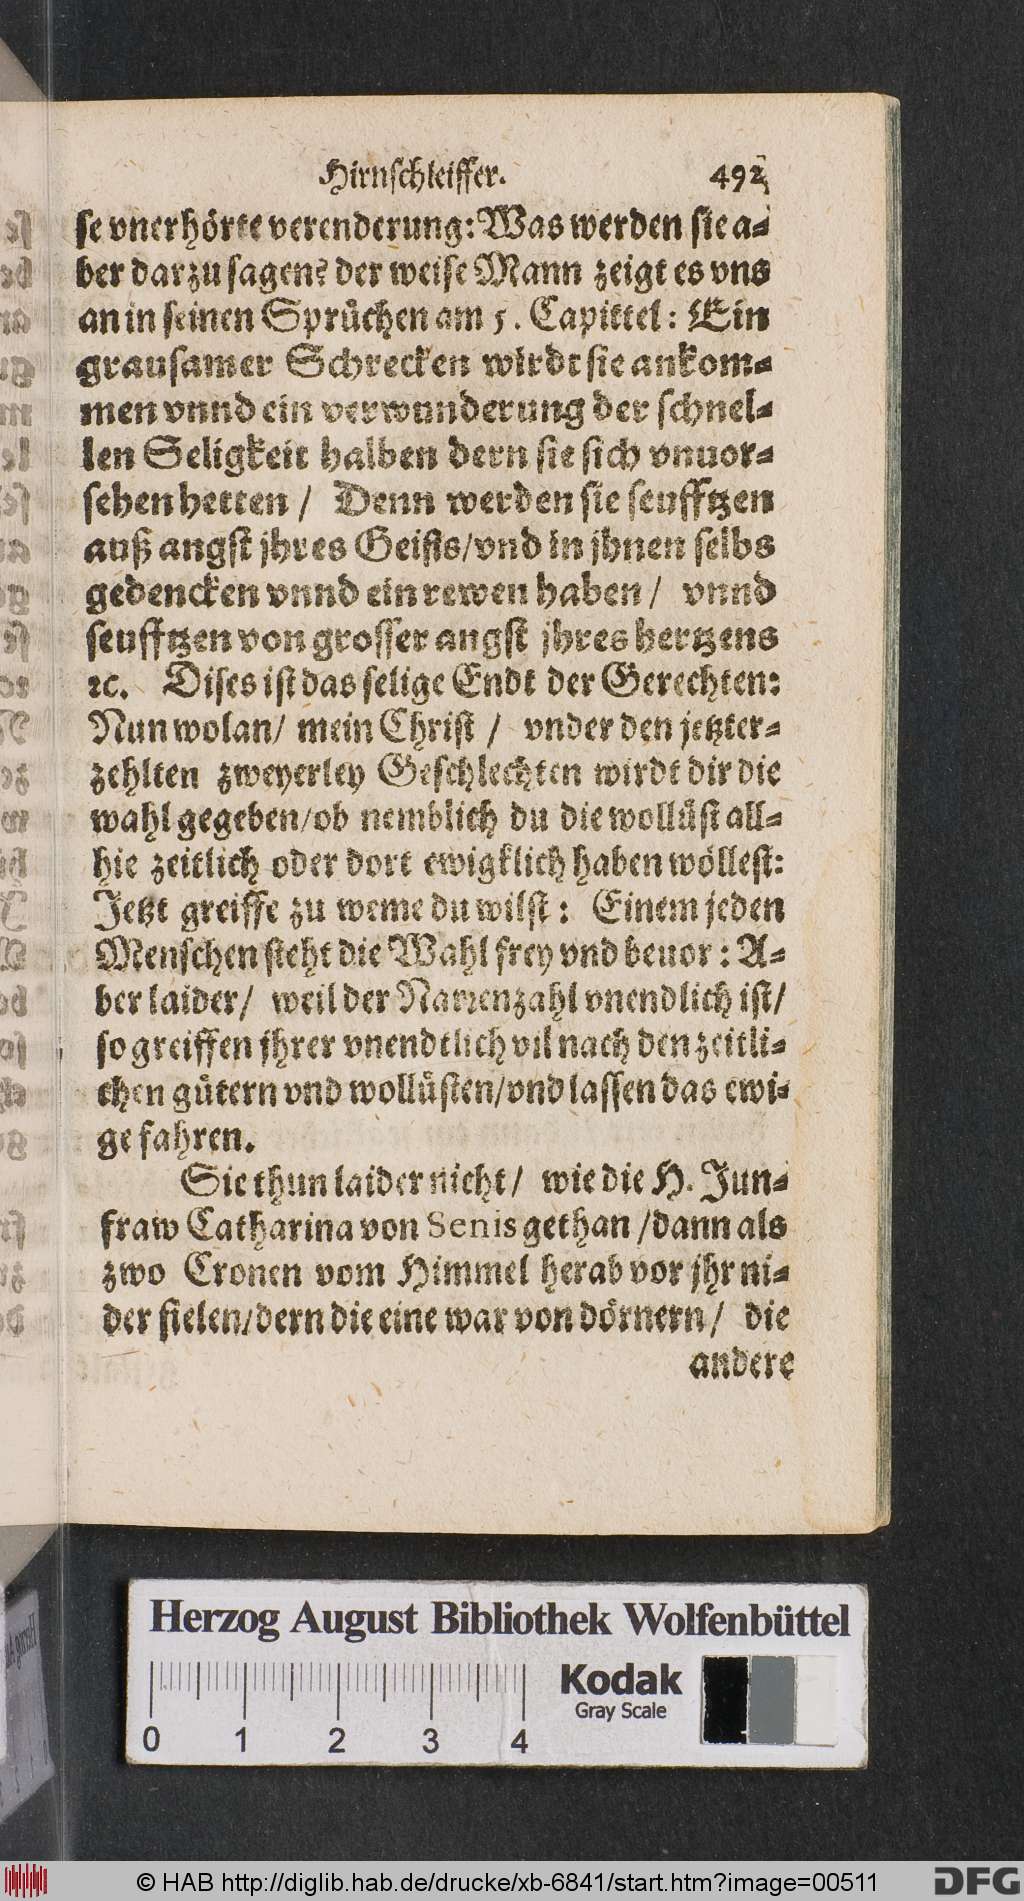 Hirnschleiffer. 492
se vnerhörte verenderung: Was werden sie a-
ber darzu sagen? der weise Mann zeigt es vns
an in seinen Sprüchen am 5. Capittel: Ein
grausamer Schrecken wirdt sie ankom-
men vnnd ein verwunderung der schnel-
len Seligkeit halben dern sie sich vnuor-
sehen hetten / Denn werden sie seufftzen
auß angst jhres Geists/vnd in jhnen selbs
gedencken vnnd ein rewen haben / vnnd
seufftzen von grosser angst jhres hertzens
ꝛc. Dises ist das selige Endt der Gerechten:
Nun wolan/ mein Christ / vnder den jetzter-
zehlten zweyerley Geschlechten wirdt dir die
wahl gegeben/ob nemblich du die wollüst all-
hie zeitlich oder dort ewigklich haben wöllest:
Jetzt greiffe zu weme du wilst: Einem jeden
Menschen steht die Wahl frey vnd beuor: A-
ber laider/ weil der Narrenzahl vnendlich ist/
so greiffen jhrer vnendtlich vil nach den zeitli-
chen gütern vnd wollüsten/vnd lassen das ewi-
ge fahren.
Sie thun laider nicht/ wie die H. Jun-
fraw Catharina von Senis gethan /dann als
zwo Cronen vom Himmel herab vor jhr ni-
der fielen/dern die eine war von dörnern/ die
andere
Herzog August Bibliothek Wolfenbüttel
Kodak
Gray Scale
0 1 2 3 4
© HAB http://diglib.hab.de/drucke/xb-6841/start.htm?image=00511
DFG